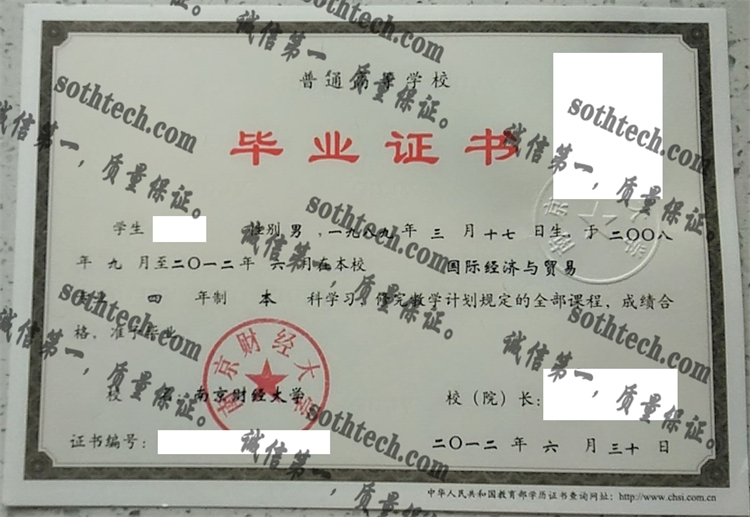 普通高等学校
毕业证书
学生 性别 男 , 一九八九年 三 月 十七 日生, 于 二〇〇八
年 九 月至 二〇一二 年 六 月在本校 国际经济与贸易
四 年制 本 科学习, 修完教学计划规定的全部课程, 成绩合
格, 准予毕业。
校 名: 南京财经大学 校(院)长:
证书编号: 二〇一二 年 六 月 三十 日
中华人民共和国教育部学历证书查询网址: http://www.chsi.com.cn
南京财经大学
sothtech.com
诚信第一,质量保证。
sothtech.com
诚信第一,质量保证。
sothtech.com
诚信第一,质量保证。
sothtech.com
诚信第一,质量保证。
sothtech.com
诚信第一,质量保证。
sothtech.com
诚信第一,质量保证。
sothtech.com
诚信第一,质量保证。
sothtech.com
诚信第一,质量保证。